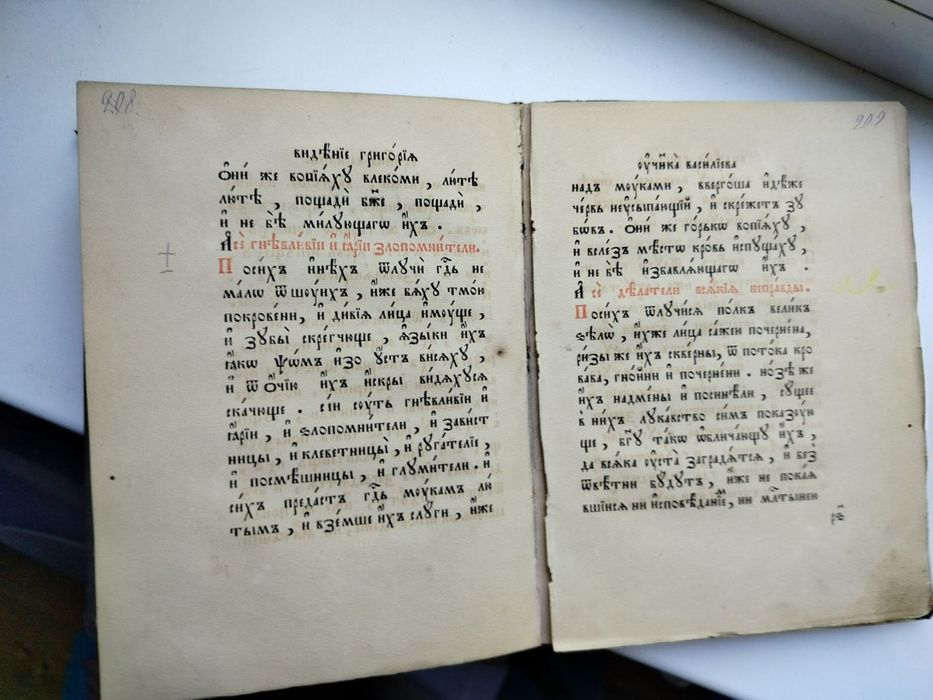 208
видѣ́нїе григо́рїя
Ѻ҆ни́ же вопїѧ́хꙋ влеко́ми , лю́тѣ
лю́тѣ , пощади̑ бж҃е , пощади̑ ,
и҆ не бѣ̀ ми́лующагѡ и҆́хъ .
А҆ сѐ гнѣвли́вїи и҆ ꙗ҆́рїи злопомни́тели.
По си́хъ и҆нѣ́хъ ѿлꙋчѝ гд҇ь не
ма́лѡ ѿ шоу́ихъ , и҆́же бѧ́хꙋ тмо́ю
покрове́ни , и҆ ди́вїѧ ли́ца и҆мꙋ́ще ,
и҆ зꙋ́бы̀ скрегчю́ще , ѧ҆зы́ки и҆́хъ
ꙗ҆́кѡ ѱѡ́мъ и҆зо ᲂу҆́стъ висѧ́хꙋ ,
и҆ ѿ Ѻ҆́чїю и҆́хъ и҆́скры ви́дѧхꙋсѧ
ска́чюще . сїи́ соу́ть гнѣвли́вїи и҆
ꙗ҆́рїи , и҆ ѕлопомни́тели , и҆ зави́ст
ницы , и҆ клебетницы̀ , и҆ рꙋга́телїе ,
и҆ посмѣ́шницы , и҆ глꙋми́тели . и҆
си́хъ преда́стъ гд҇ь моу́камъ лю
ты́мъ , и҆ взе́мше и҆́хъ слꙋги̑ , и҆́же
209
ᲂу҆чн҃ка̀ васи́лїева
надъ моу́ками , вверго́ша и҆дѣ́же
че́рвь неꙋсыпа́ющїй , и҆ скре́жетъ зꙋ
бѡ́въ . Ѻ҆ни́ же го́рькѡ вопїѧ́хꙋ ,
и҆ вслез̾ мѣ́стѡ кро́вь и҆спꙋща́хꙋ ,
и҆ не бѣ̀ и҆збавлѧ́ющагѡ и҆́хъ .
А҆ сѐ дѣ́латели всѧ́кїѧ непра́вды .
По си́хъ ѿлꙋчи́сѧ по́лкъ вели́къ
ѕѣлѡ̀ , и҆́хже ли́ца са́жею почерне́на ,
ри́зы же и҆́хъ скве́рны , ѿ пото́ка кро
ва́ва , гно́йни и҆ почерне́ни . но́зѣ же
и҆́хъ надме́ны и҆ посинѣ́ли , сꙋ́щее
в̾ ни́хъ лꙋка́вство си́мъ показоу́ю
ще , бг҃ꙋ та́кѡ ѡ҆блича́ющꙋ и҆́хъ ,
да всѧ́ка ᲂу҆ста̀ загради́тсѧ , и҆ без̾
ѿвѣ́тни бꙋ́дꙋтъ , и҆̀же не пока́ѧ
вшїисѧ ни и҆сповѣ́данїем̾ , ни мл҇тынею